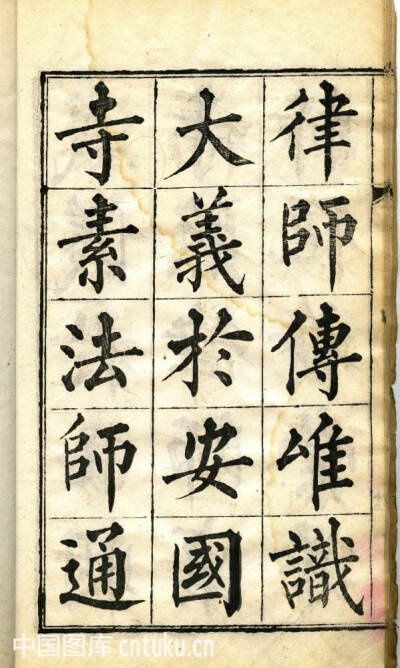 律師傳唯識
大義於安國
寺素法師通
中国图库 cntuku.cn